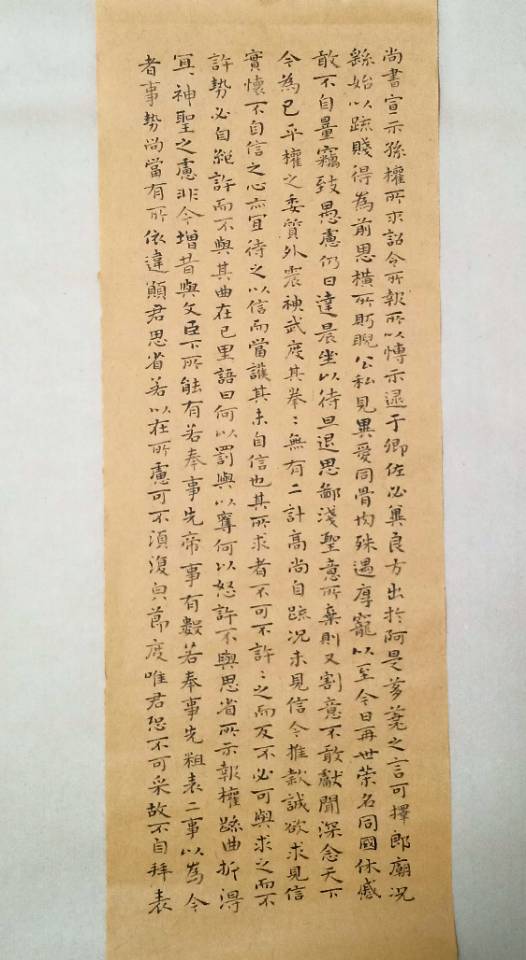 尚書宣示孫權所求詔令所報所以博示逮于卿佐必冀良方出於阿是芻蕘之言可擇郎廟況
繇始以疏賤得為前恩橫所眄睨公私見異愛同骨肉殊遇厚寵以至今日再世榮名同國休慼
敢不自量竊致愚慮仍日達晨坐以待旦退思鄙淺聖意所棄則又割意不敢獻聞深念天下
今為已平權之委質外震神武度其拳〻無有二計高尚自疏況未見信今推款誠欲求見信
實懷不自信之心亦宜待之以信而當護其未自信也其所求者不可不許〻之而反不必可與求之而不
許勢必自絕許而不與其曲在己里語曰何以罰與以奪何以怒許不與思省所示報權疏曲折得
宜〻神聖之慮非今增昔與文臣下所能有若奉事先帝事有數若奉事先粗表二事以為今
者事勢尚當有所依違願君思省若以在所慮可不須復㒵節度唯君恐不可采故不自拜表